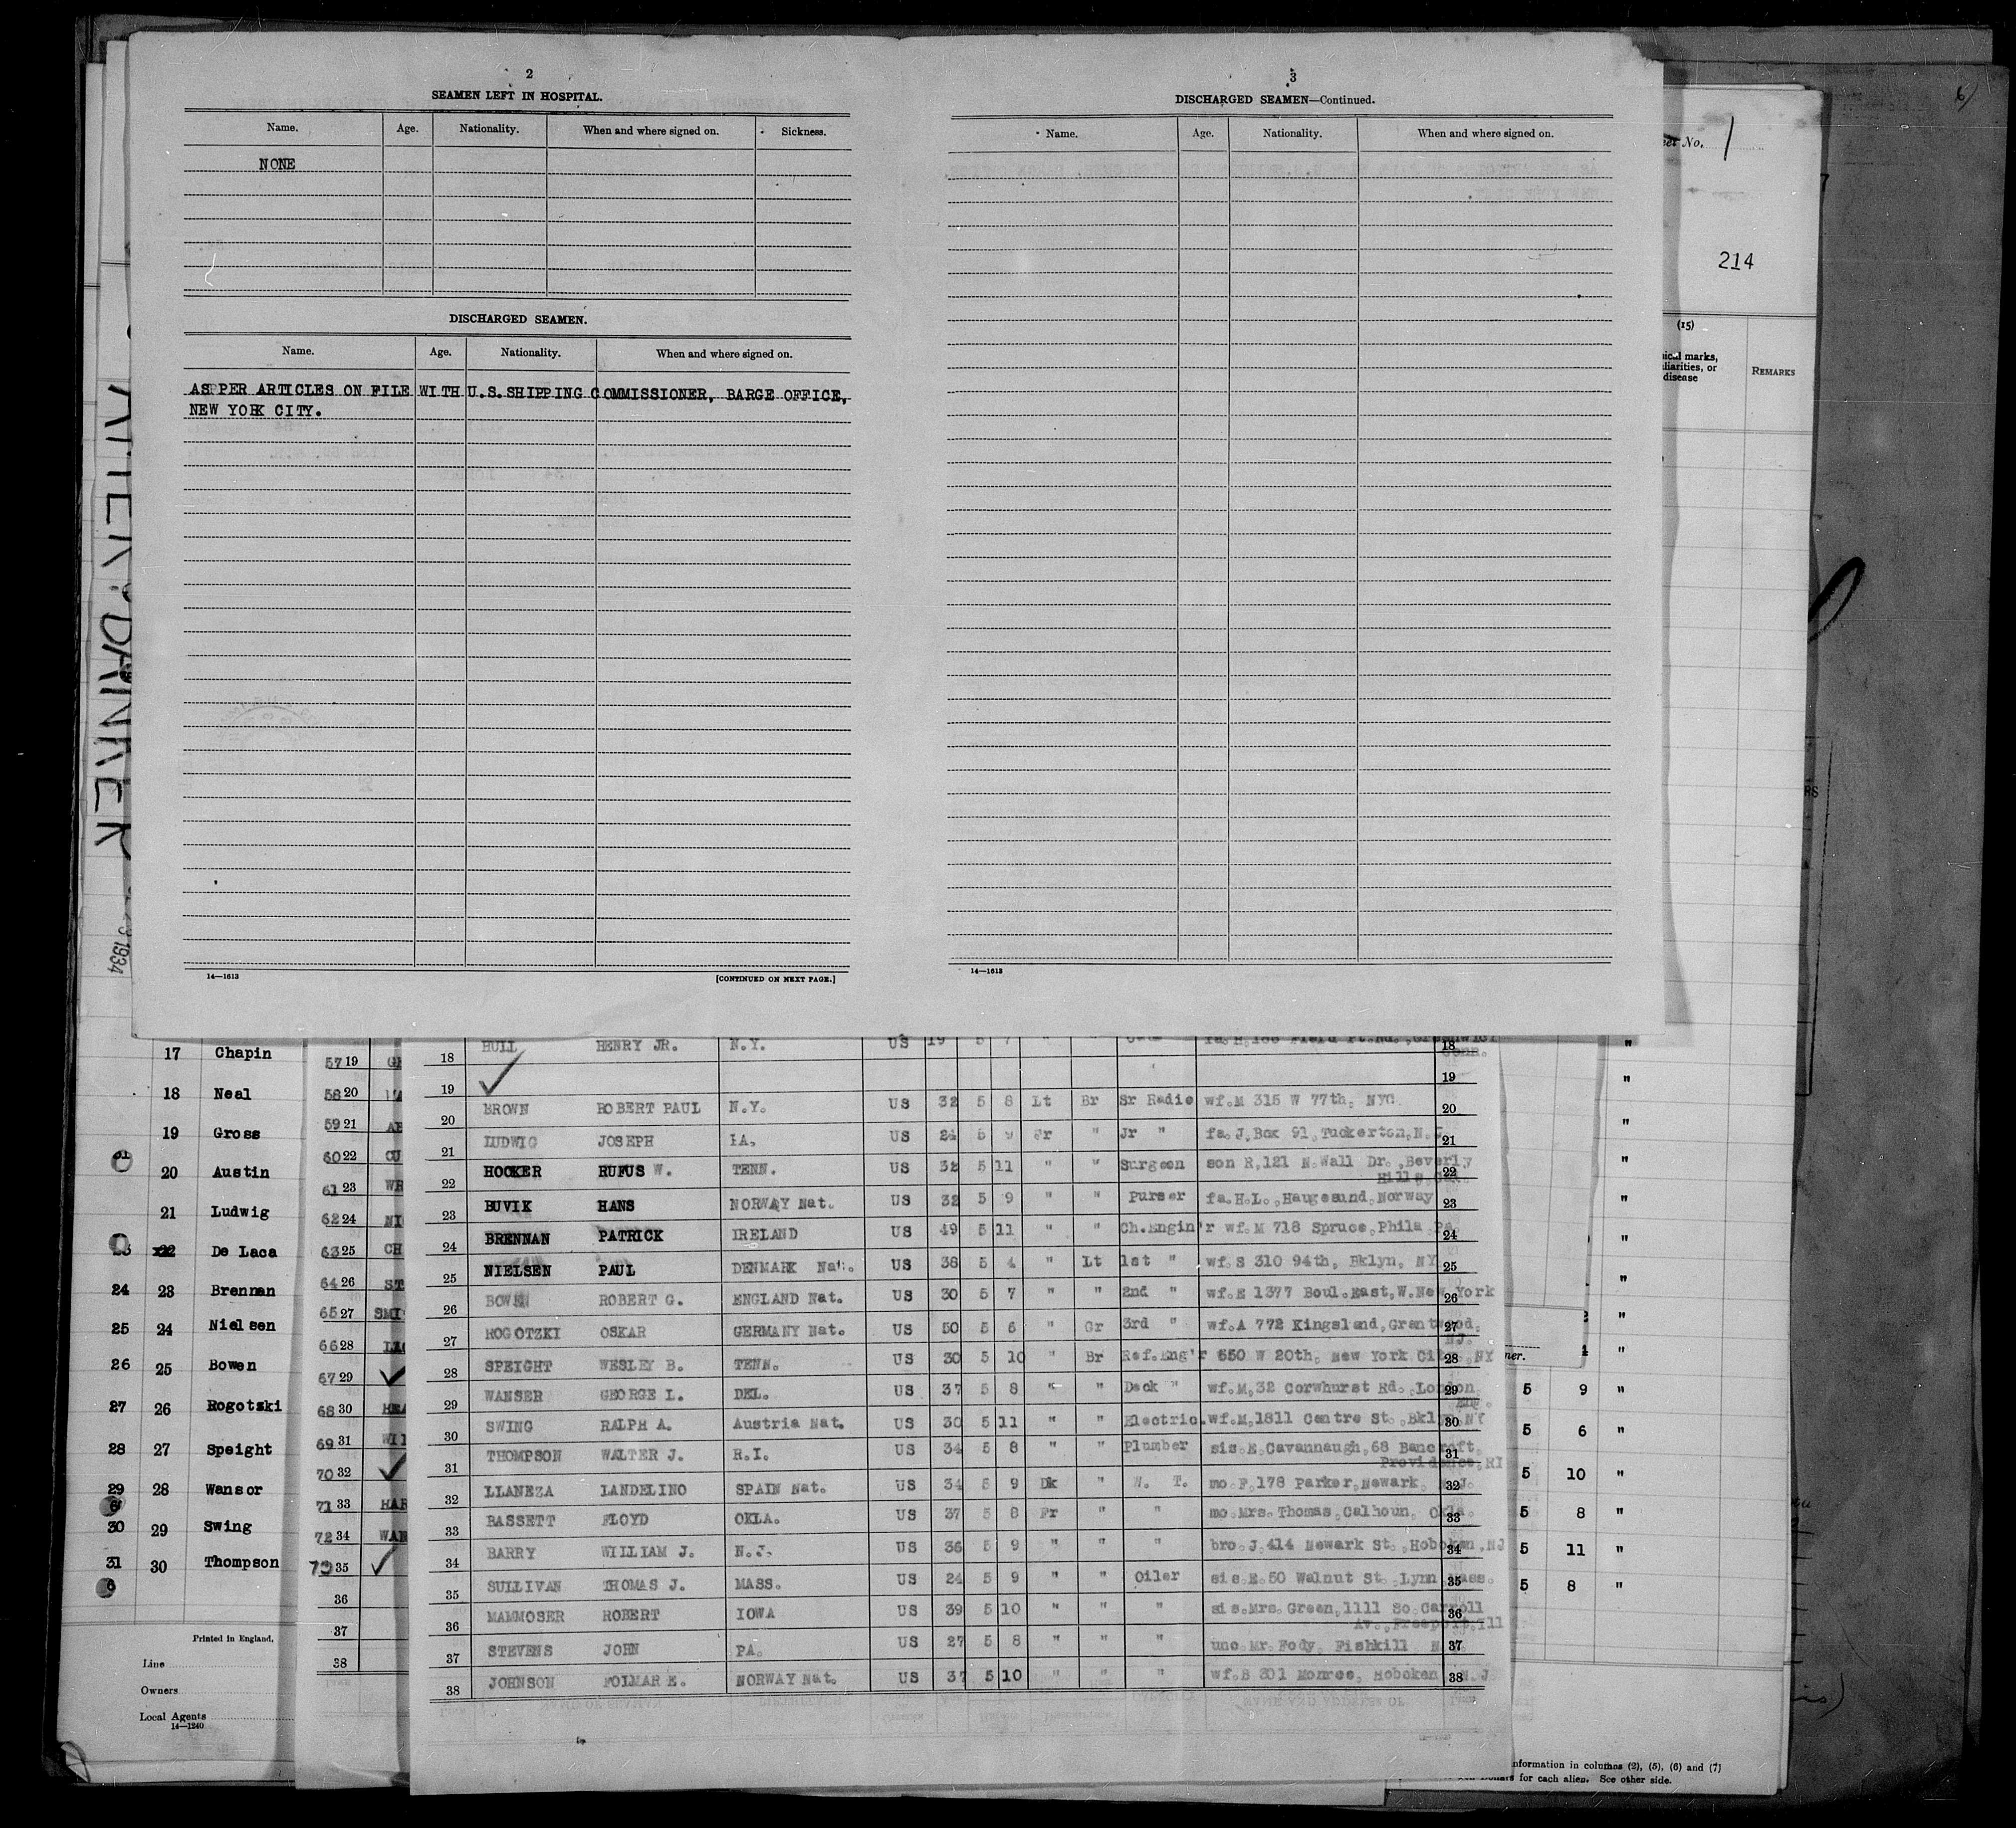 2
SEAMEN LEFT IN HOSPITAL.
Name. Age. Nationality. When and where signed on. Sickness.
NONE
DISCHARGED SEAMEN.
Name. Age. Nationality. When and where signed on.
AS PER ARTICLES ON FILE WITH U.S.SHIPPING COMMISSIONER, BARGE OFFICE,
NEW YORK CITY.
14—1613 [CONTINUED ON NEXT PAGE.]
3
DISCHARGED SEAMEN—Continued.
Name. Age. Nationality. When and where signed on.
14—1613
No. 1
214
(15)
ical marks,
liarities, or
disease
REMARKS
1934
17 Chapin
18 Neal
19 Gross
20 Austin
21 Ludwig
22 De Laca
24 23 Brennan
25 24 Nielsen
26 25 Bowen
27 26 Rogotski
28 27 Speight
29 28 Wansor
30 29 Swing
31 30 Thompson
Printed in England.
Line
Owners
Local Agents
14—1240
57 19
58 20
59 21
60 22 CU
61 23 WR
62 24 NI
63 25 CH
64 26 ST
65 27 SMI
66 28
67 29
68 30 HEA
69 31 WIL
70 32
71 33 HAR
72 34 WAN
73 35
36
37
38
18 HULL HENRY JR. N.Y. US 19 5 7 fa.H,188 Field Pt.Rd.,Greenwich Conn. 18
19 19
20 BROWN ROBERT PAUL N.Y. US 32 5 8 Lt Br Sr Radio wf.M 315 W 77th, NYC 20
21 LUDWIG JOSEPH IA. US 24 5 9 Fr " Jr " fa.J,Box 91,Tuckerton,N.J. 21
22 HOOKER RUFUS W. TENN. US 32 5 11 " " Surgeon son R,121 N.Wall Dr.,Beverly Hills,Cal. 22
23 BUVIK HANS NORWAY Nat. US 32 5 9 " " Purser fa.H.L.,Haugesund,Norway 23
24 BRENNAN PATRICK IRELAND US 49 5 11 " " Ch.Engin'r wf.M 718 Spruce,Phila Pa. 24
25 NIELSEN PAUL DENMARK Nat. US 38 5 4 " Lt 1st " wf.S 310 94th, Bklyn, NY 25
26 BOWEN ROBERT G. ENGLAND Nat. US 30 5 7 " " 2nd " wf.E 1377 Boul.East,W.New York 26
27 ROGOTZKI OSKAR GERMANY Nat. US 50 5 6 " Gr 3rd " wf.A 772 Kingsland,Grantwood, NJ. 27
28 SPEIGHT WESLEY B. TENN. US 30 5 10 " Br Ref.Eng'r 550 W 20th, New York City, NY 28
29 WANSER GEORGE L. DEL. US 37 5 8 " " Deck " wf.M,32 Corwhurst Rd.,London Eng. 29
30 SWING RALPH A. Austria Nat. US 30 5 11 " " Electric. wf.M,1811 Centre St.,Bklyn,NY 30
31 THOMPSON WALTER J. R.I. US 34 5 8 " " Plumber sis.E.Cavannaugh,68 Bancroft, Providence,RI 31
32 LLANEZA LANDELINO SPAIN Nat. US 34 5 9 Dk " W. T. mo.F,178 Parker,Newark, N.J. 32
33 BASSETT FLOYD OKLA. US 37 5 8 Fr " " mo.Mrs.Thomas,Calhoun, Okla. 33
34 BARRY WILLIAM J. N.J. US 36 5 9 " " " bro.J,414 Newark St.,Hoboken,NJ 34
35 SULLIVAN THOMAS J. MASS. US 24 5 9 " " Oiler sis.E.50 Walnut St.,Lynn,Mass. 35
36 MAMMOSER ROBERT IOWA US 39 5 10 " " " sis.Mrs.Green,1111 So.Carroll Av.,Freeport,Ill 36
37 STEVENS JOHN PA. US 27 5 8 " " " unc.Mr.Fody, Fishkill 37
38 JOHNSON FOLMAR E. NORWAY Nat. US 37 5 10 " " " wf.B 301 Monroe, Hoboken N.J 38
ner.
5 9 "
5 6 "
5 10 "
5 8 "
5 11 "
5 8 "
nformation in columns (2), (5), (6) and (7)
for each alien. See other side.